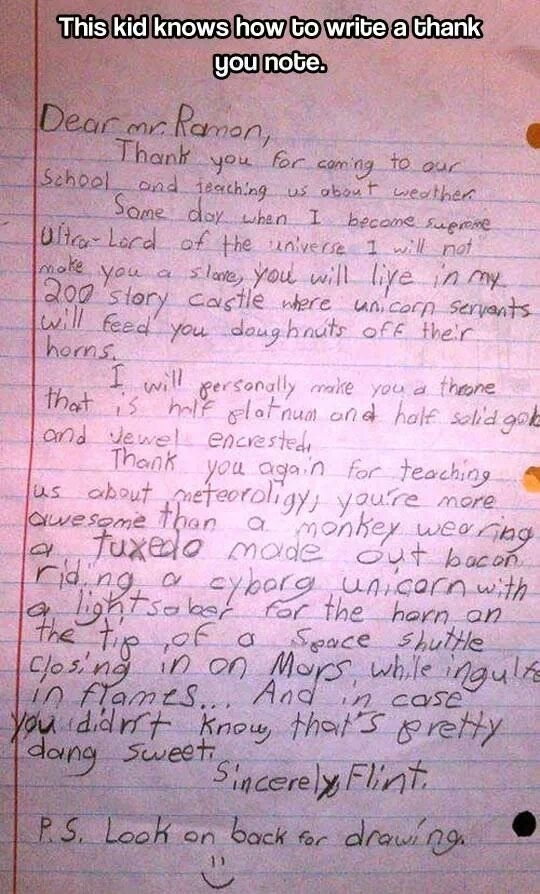 This kid knows how to write a thank
you note.
Dear mr. Ramon,
Thank you for coming to our
School and teaching us about weather.
Some day when I become supreme
Ultra-Lord of the universe I will not
make you a slave, you will live in my
200 story castle where unicorn servants
will feed you doughnuts off their
horns.
I will personally make you a throne
that is half platnum and half solid gold
and Jewel encrested.
Thank you again for teaching
us about meteoroligy, you're more
awesome than a monkey wearing
a tuxedo made out bacon
riding a cyborg unicorn with
a lightsaber for the horn on
the tip of a Space shuttle
closing in on Mars while ingulfe
in flames... And in case
you didn't know, that's pretty
dang sweet.
Sincerely, Flint.
P.S. Look on back for drawing.